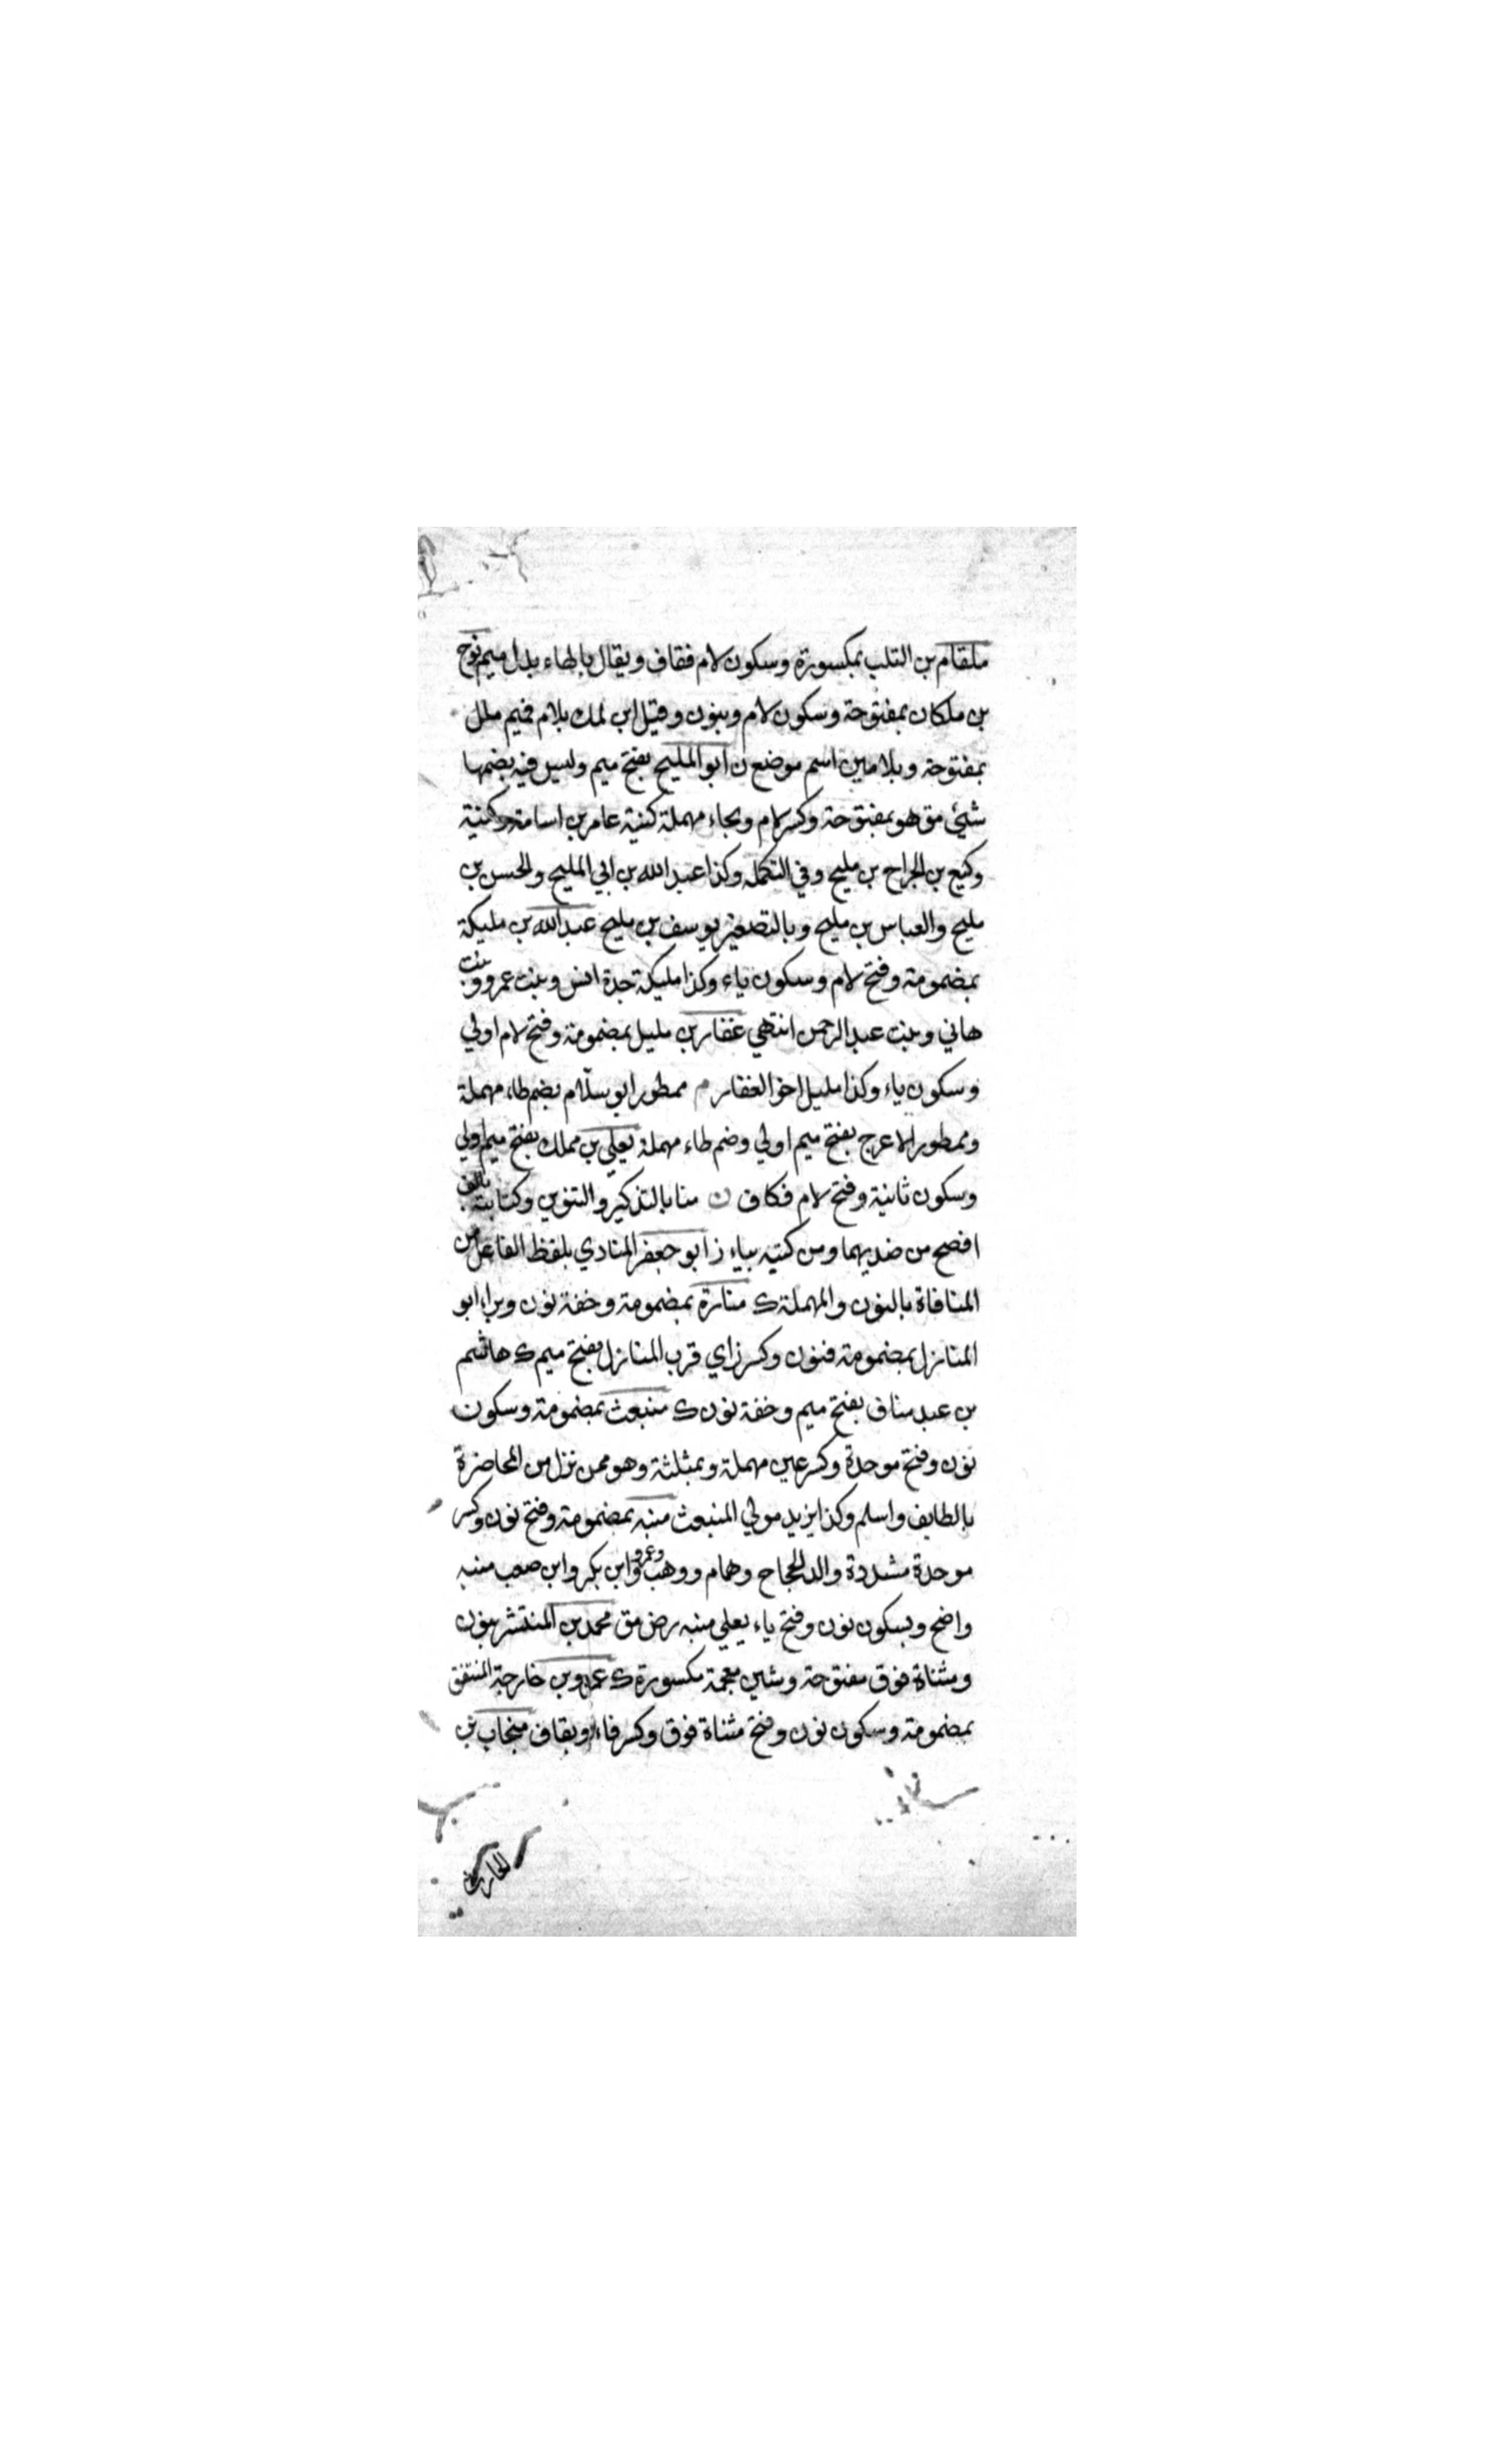 ملقام بن التلب بمكسورة وسكون لام فقاف ويقال بالهاء بدل ميم نوح
بن ملكان بمفتوحة وسكون لام وبنون وقيل ابن لمك بلام فميم ملل
بمفتوحة وبلامين اسم موضع ن ابو المليح بفتح ميم وليس فيه بضمها
شيئ مق هو بمفتوحة وكسر لام وبحاء مهملة كنية عامر بن اسامة وكنية
وكيع بن الجراح بن مليح وفي التكمله وكذا عبد الله بن ابي المليح والحسن بن
مليح والعباس بن مليح وبالتصغير يوسف بن مليح عبد الله بن مليكة
بمضمومة وفتح لام وسكون ياء وكذا مليكة جدة انس وبنت عمرو وبنت
هاني وبنت عبد الرحمن انتهي غفار بن مليل بمضمومة وفتح لام اولي
وسكون ياء وكذا مليل اخو الغفار م ممطور ابو سلّام بضم طاء مهملة
وممطور الاعرج بفتح ميم اولي وضم طاء مهملة يعلي بن مملك بفتح ميم اولي
وسكون ثانية وفتح لام فكاف ن منا بالتذكير والتنوين وكتابته بالف
افصح من ضديهما ومن كتبه بياء ز ابو جعفر المنادي بلفظ الفاعل من
المنافاة بالنون والمهملة ك منارة بمضمومة وخفة نون وبراء ابو
المنازل بمضمومة فنون وكسر زاي قرب المنازل بفتح ميم ك هاشم
بن عبد مناف بفتح ميم وخفة نون ك منبعث بمضمومة وسكون
نون وفتح موحدة وكسر عين مهملة وبمثلثة وهو ممن نزل من المحاضرة
بالطايف واسلم وكذا يزيد مولي المنبعث منبه بمضمومة وفتح نون وكسر
موحدة مشددة والد الحجاج وهمام ووهب وعمرو وابن بكر وابن صعب منبه
واضح وبسكون نون وفتح ياء يعلي منبه رض مق محمد بن المنتشر بنون
ومثناة فوق مفتوحة وشين معجمة مكسورة ك عمرو بن خارجة المنتفق
بمضمومة وسكون نون وفتح مثناة فوق وكسر فاء وبقاف منجاب بن
الحارث